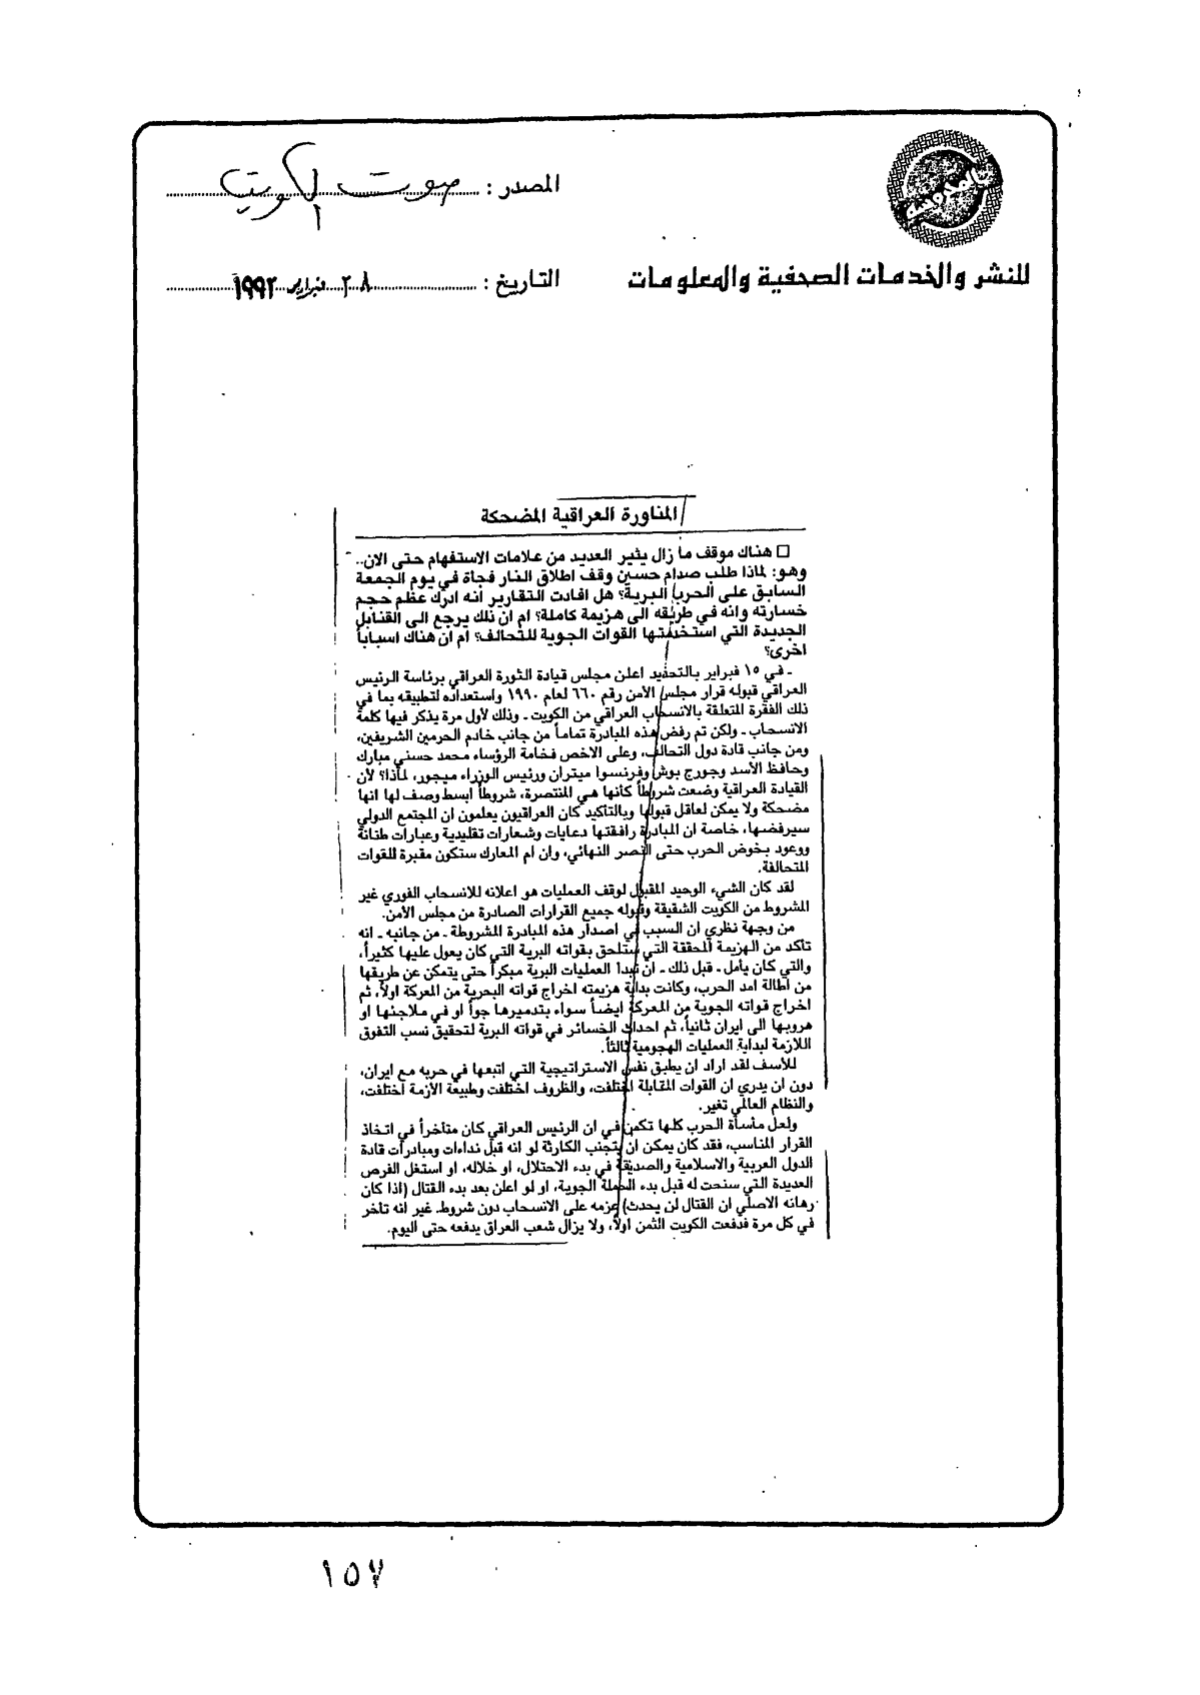 المصدر : صوت الكويت
للنشر والخدمات الصحفية والمعلومات
التاريخ : ٢٠٨ فبراير ١٩٩٢
المناورة العراقية المضحكة
□ هناك موقف ما زال يثير العديد من علامات الاستفهام حتى الان..
وهو: لماذا طلب صدام حسين وقف اطلاق النار فجأة في يوم الجمعة
السابق على الحرب البرية؟ هل افادت التقارير انه ادرك عظم حجم
خسارته وانه في طريقه الى هزيمة كاملة؟ ام ان ذلك يرجع الى القنابل
الجديدة التي استخدمتها القوات الجوية للتحالف؟ ام ان هناك اسباباً
اخرى؟
ـ في ١٥ فبراير بالتحديد اعلن مجلس قيادة الثورة العراقي برئاسة الرئيس
العراقي قبوله قرار مجلس الأمن رقم ٦٦٠ لعام ١٩٩٠ واستعداده لتطبيقه بما في
ذلك الفقرة المتعلقة بالانسحاب العراقي من الكويت ـ وذلك لأول مرة يذكر فيها كلمة
الانسحاب ـ ولكن تم رفض هذه المبادرة تماماً من جانب خادم الحرمين الشريفين،
ومن جانب قادة دول التحالف، وعلى الاخص فخامة الرؤساء محمد حسني مبارك
وحافظ الأسد وجورج بوش وفرنسوا ميتران ورئيس الوزراء ميجور، لماذا؟ لأن
القيادة العراقية وضعت شروطاً كانها هي المنتصرة، شروطاً ابسط وصف لها انها
مضحكة ولا يمكن لعاقل قبولها وبالتأكيد كان العراقيون يعلمون ان المجتمع الدولي
سيرفضها، خاصة ان المبادرة رافقتها دعايات وشعارات تقليدية وعبارات طنانة
ووعود بخوض الحرب حتى النصر النهائي، وان ام المعارك ستكون مقبرة للقوات
المتحالفة.
لقد كان الشيء الوحيد المقبول لوقف العمليات هو اعلانه للانسحاب الفوري غير
المشروط من الكويت الشقيقة وقبوله جميع القرارات الصادرة من مجلس الأمن.
من وجهة نظري ان السبب في اصدار هذه المبادرة المشروطة ـ من جانبه ـ انه
تأكد من الهزيمة المحققة التي ستلحق بقواته البرية التي كان يعول عليها كثيراً،
والتي كان يأمل ـ قبل ذلك ـ ان تبدا العمليات البرية مبكراً حتى يتمكن عن طريقها
من اطالة امد الحرب، وكانت بداية هزيمته اخراج قواته البحرية من المعركة اولاً، ثم
اخراج قواته الجوية من المعركة ايضاً سواء بتدميرها جواً او في ملاجئها او
هروبها الى ايران ثانياً، ثم احداث الخسائر في قواته البرية لتحقيق نسب التفوق
اللازمة لبداية العمليات الهجومية ثالثاً.
للأسف لقد اراد ان يطبق نفس الاستراتيجية التي اتبعها في حربه مع ايران،
دون ان يدري ان القوات المقابلة اختلفت، والظروف اختلفت وطبيعة الأزمة اختلفت،
والنظام العالمي تغير.
ولعل مأساة الحرب كلها تكمن في ان الرئيس العراقي كان متأخراً في اتخاذ
القرار المناسب، فقد كان يمكن ان يتجنب الكارثة لو انه قبل نداءات ومبادرات قادة
الدول العربية والاسلامية والصديقة في بدء الاحتلال، او خلاله، او استغل الفرص
العديدة التي سنحت له قبل بدء الحملة الجوية، او لو اعلن بعد بدء القتال (اذا كان
رهانه الاصلي ان القتال لن يحدث) عزمه على الانسحاب دون شروط. غير انه تأخر
في كل مرة فدفعت الكويت الثمن اولاً، ولا يزال شعب العراق يدفعه حتى اليوم.
١٥٧